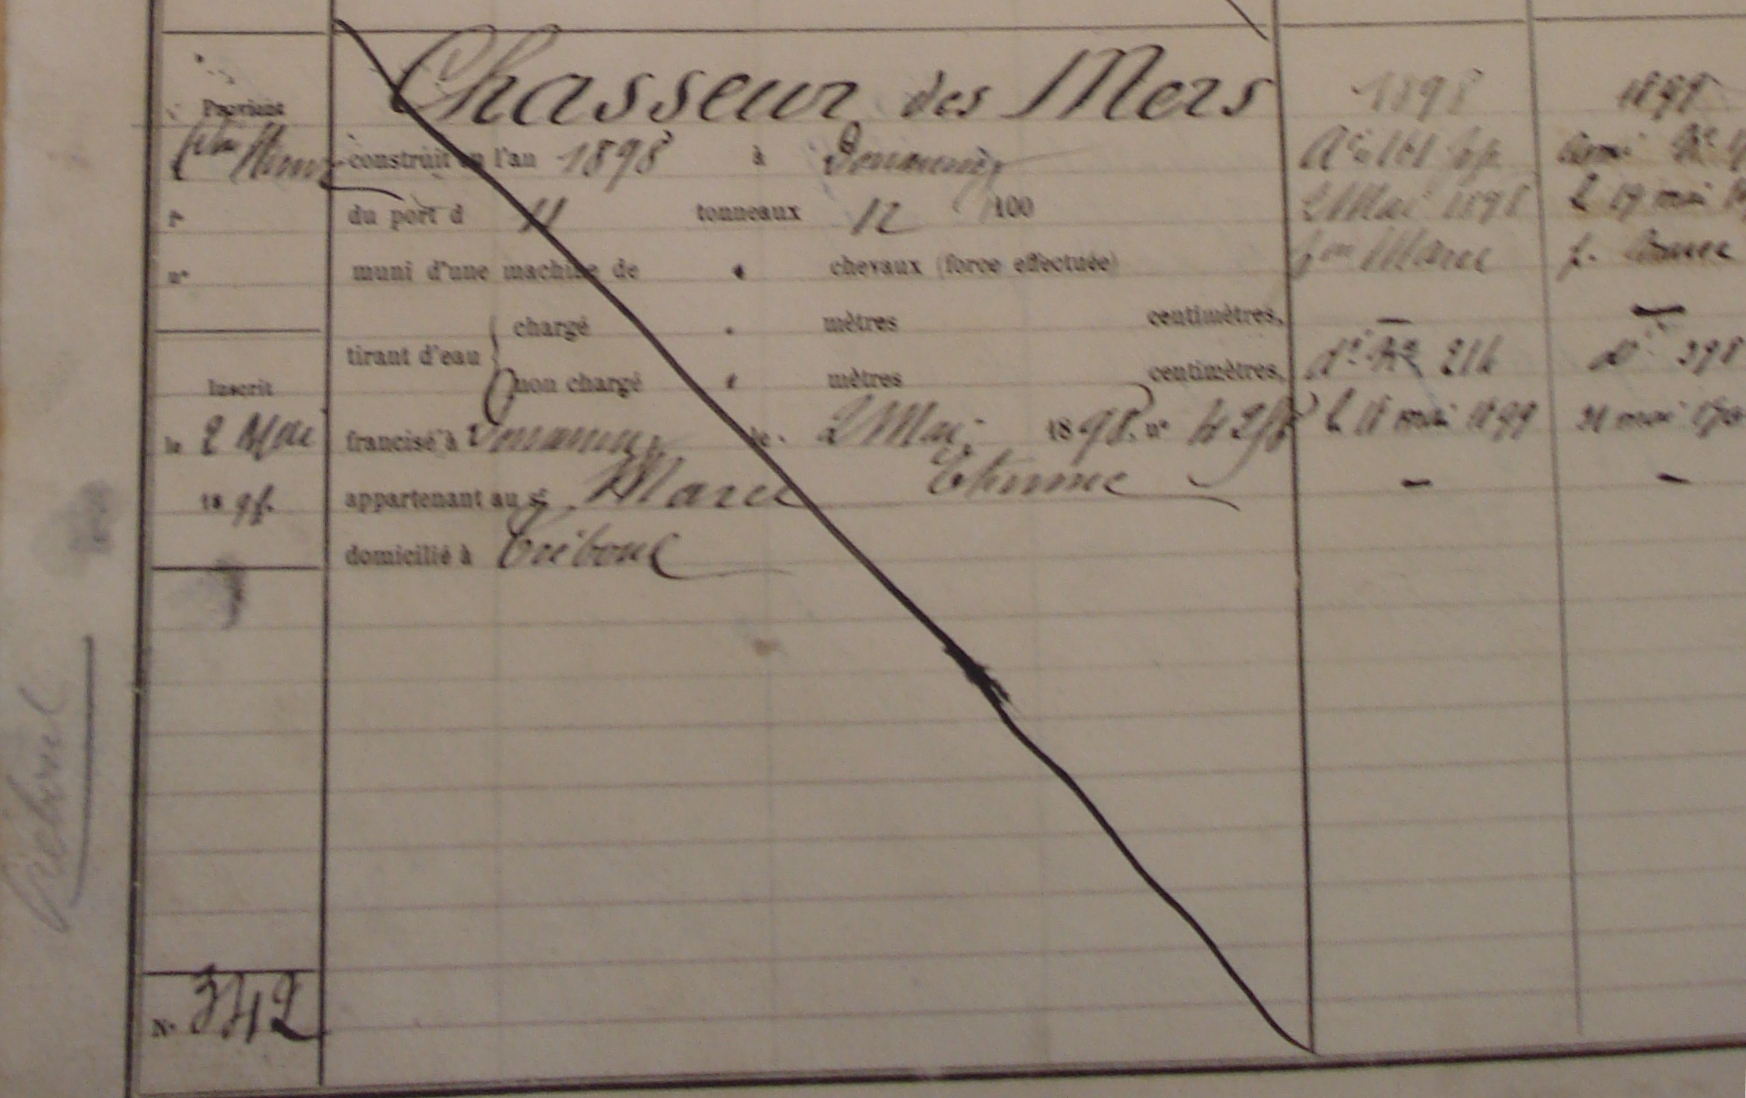 Chasseur des Mers
Provient
construit en l'an 1898 à Douarnenez
du port d 11 tonneaux 12 100
fo
no
muni d'une machine de chevaux (force effectuée)
tirant d'eau
chargé mètres centimètres,
non chargé mètres centimètres,
Inscrit
le 2 Mai
1898
francisé à Douarnenez le 2 Mai 1898. no
appartenant au sr Marec Etienne
domicilié à Tréboul
No 342
Tréboul
1898
2 Mai 1898
pon Marec
do No 216
le 18 mai 1899
—
le 19 mai
—
21 mai
—